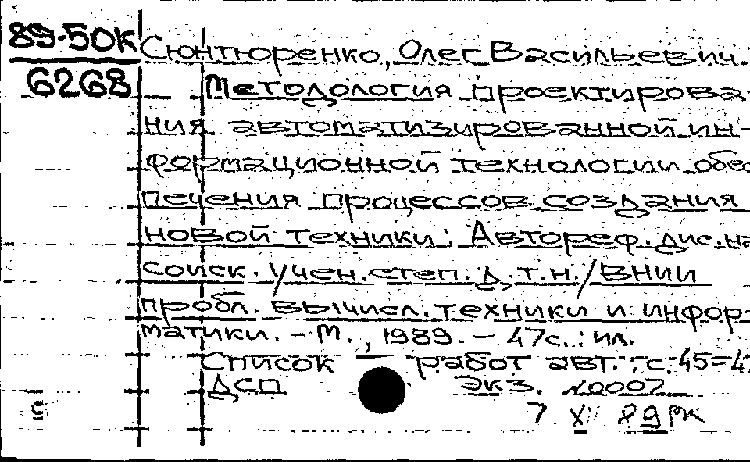 89-50К Сюнтюренко, Олег Васильевич.
6268 Методология проектирова-
ния автоматизированной ин-
формационной технологии обес
печения процессов создания
новой техники: Автореф. дис. на
соиск. учен. степ. д.т.н./ВНИИ
пробл. вычисл. техники и инфор-
матики. - М., 1989. - 47с.: ил.
Список работ авт.: с. 45-4
ДСП Экз. №0007
7 XII 89 РК